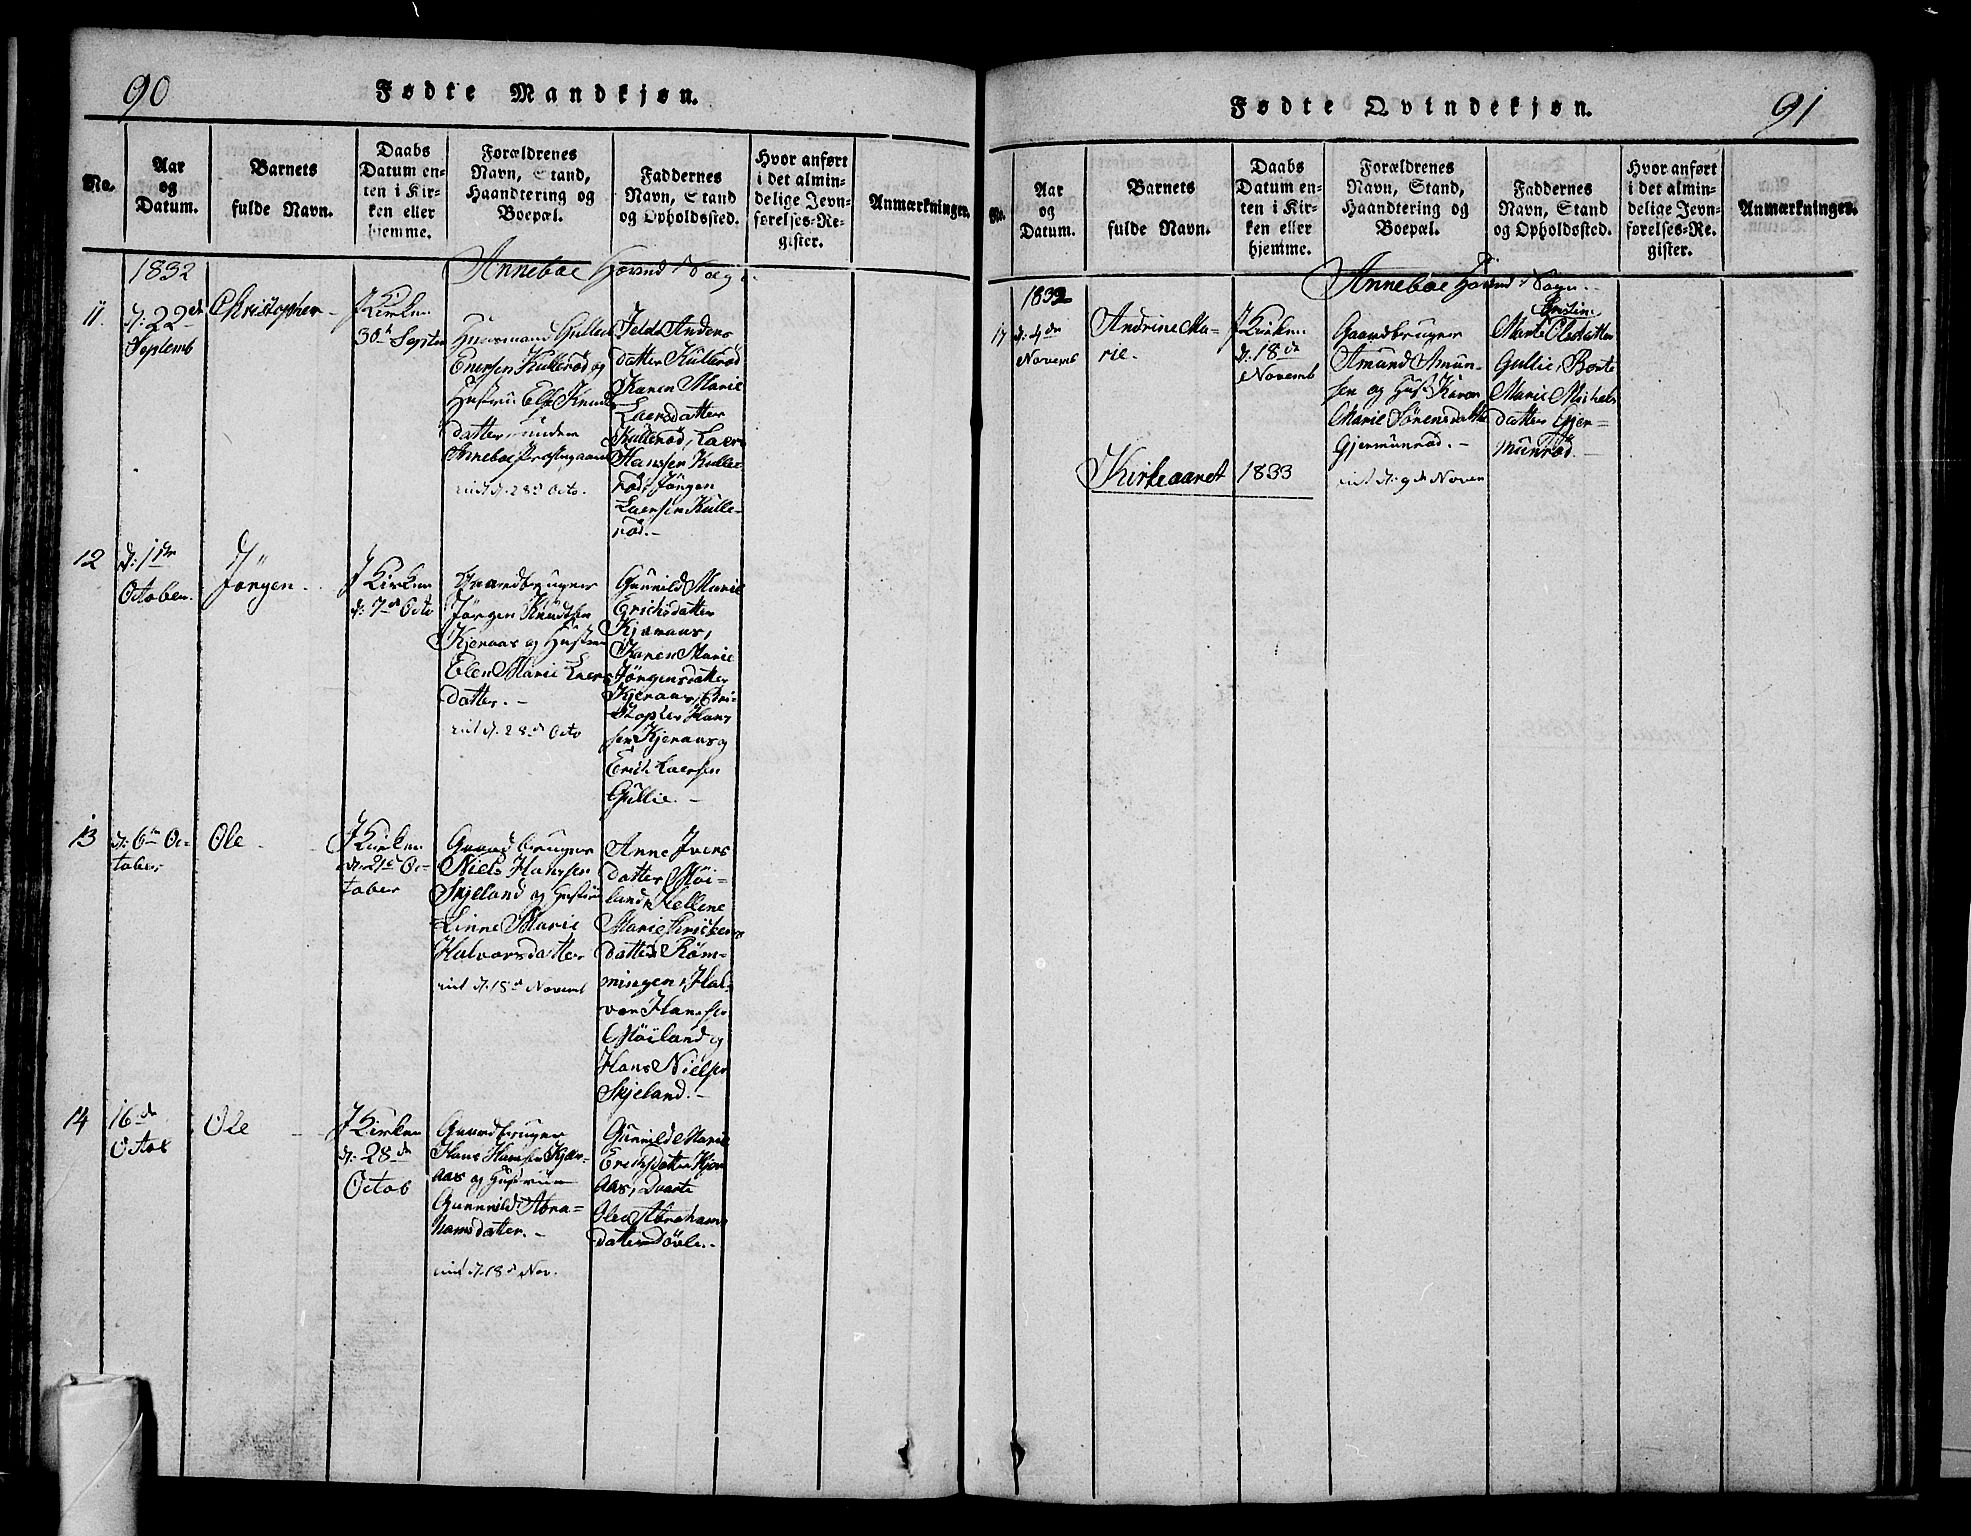 90
Fødte Mandkjøn.
No.
Aar
og
Datum.
Barnets
fulde Navn.
Daabs
Datum en-
ten i Kir-
ken eller
hjemme.
Forældrenes
Navn, Stand,
Haandtering og
Boepæl.
Faddernes
Navn, Stand
og Opholdssted.
Hvor anført
i det almin-
delige Jevn-
førelses-Re-
gister.
Anmærkninger.
1832
Anneboe Hovind Sogn
11.
d: 22de
Septemb
Christopher
I Kirken
30te Septbr
Huusmand Gullec
Enersen Kullerød og
Hustrue Else Knuds
datter, under
Anneboe Præstegaard
d. 28de Octo.
Anders
datter Kullerød
Karen Marie
Laersdatter
Kullerød, Laers
Hanssen Kulle-
rød, Jørgen
Laersen Kulle-
rød.-
12
d: 1ste
October.
Jørgen.
I Kirken
d: 7de Octo
Gaardbruger
Jørgen Knudsen
Kjeraas og Hustrue
Elen Marie Laers
datter.-
d. 28de Octo
Gunnild Marie
Erichsdatter
Kjeraas,
Karen Marie
Jørgensdatter
Kjeraas, Chri-
stopher Hans
sen Kjeraas og
Erich Laersen
Gullie.-
13
d: 6te Oc-
tober
Ole
I Kirken
d. 21de Oc-
tober
Gaardbruger
Niels Hanssen
Skjeland og Hustrue
Linne Marie
Halvorsdatter
d. 18de Novemb
Anne Ivers
datter Møi-
land, Kellene
Marie
datter Røm-
mingen, Hal-
vor Hanssen
Møiland og
Hans Nielsen
Skjeland.-
14
16de
Octob
Ole
I Kirken
d: 28de
Octob
Gaardbruger
Hans Hansen Kjær-
aas og Hustrue
Gunnild Abra-
hamsdatter.-
d. 18de Nov.
Gunnild Marie
Erichsdatter Kjer
aas, Dorte
Olea Abrahams
datter Døvle.-
91
Fødte Qvindekjøn.
No.
Aar
og
Datum.
Barnets
fulde Navn.
Daabs
Datum en-
ten i Kir-
ken eller
hjemme.
Forældrenes
Navn, Stand,
Haandtering og
Boepæl.
Faddernes
Navn, Stand
og Opholdssted.
Hvor anført
i det almin-
delige Jevn-
førelses-Re-
gister.
Anmærkninger.
1832
Anneboe Hovind Sogn.
17
d: 4de
Novemb
Andrine Ma-
rie.
I Kirken
d: 18de
Novemb
Gaardbruger
Amund Amun-
sen og Hust: Karen
Marie Sørensdatter
Gjermunrød.-
d. 9de Novem
Kirstine
Marte Olsdatter
Gullie, Berte
Marie Michels
datter Gjer-
munrød.-
Kirkeaaret 1833